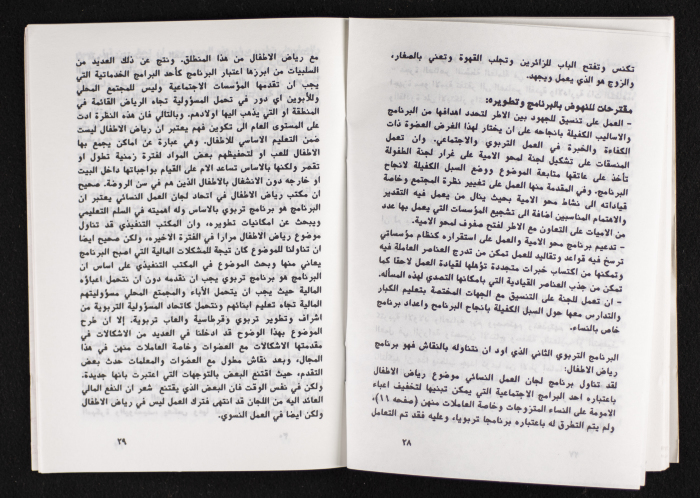 تكنس وتفتح الباب للزائرين وتجلب القهوة وتعني بالصغار،
والزوج هو الذي يعمل ويجهد.
مقترحات للنهوض بالبرنامج وتطويره:
- العمل على تنسيق للجهود بين الاطر لتحدد اهدافها من البرنامج
والاساليب الكفيلة بانجاحه على ان يختار لهذا الغرض العضوة ذات
الكفاءة والخبرة في العمل التربوي والاجتماعي. وان تعمل
المنسقات على تشكيل لجنة لمحو الامية على غرار لجنة الطفولة
تأخذ على عاتقها متابعة الموضوع ووضع السبل الكفيلة لانجاح
البرنامج. وفي المقدمة منها العمل على تغيير نظرة المجتمع وخاصة
قياداته الى نشاط محو الامية بحيث ينال من يعمل فيه التقدير
والاهتمام المناسبين اضافة الى تشجيع المؤسسات التي يعمل بها عدد
من الاميات على التعاون مع الاطر لفتح صفوف لمحو الامية.
- تدعيم برنامج محو الامية والعمل على استقراره كنظام مؤسساتي
ترسخ فيه قواعد وتقاليد للعمل تمكن من تدرج العناصر العاملة فيه
وتمكنها من اكتساب خبرات متجددة تؤهلها لقيادة العمل لاحقا كما
تمكن من جذب العناصر القيادية التي بامكانها التصدي لهذه المسألة.
- ان تعمل للجنة على التنسيق مع الجهات المختصة بتعليم الكبار
والتدارس معها حول السبل الكفيلة بانجاح البرنامج واعداد برنامج
خاص بالنساء.
البرنامج التربوي الثاني الذي اود ان نتناوله بالنقاش فهو برنامج
رياض الاطفال:
لقد تناول برنامج لجان العمل النسائي موضوع رياض الاطفال
باعتباره احد البرامج الاجتماعية التي يمكن تبنيها لتخفيف اعباء
الامومة على النساء المتزوجات وخاصة العاملات منهن (صفحه ١١)،
ولم يتم التطرق له باعتباره برنامجا تربوياء، وعليه فقد تم التعامل
٢٨
مع رياض الاطفال من هذا المنطلق. ونتج عن ذلك العديد من
السلبيات من ابرزها اعتبار البرنامج كأحد البرامج الخدماتية التي
يجب ان تقدمها المؤسسات الاجتماعية وليس للمجتمع المحلي
وللأبوين اي دور في تحمل المسؤولية تجاه الرياض القائمة في
المنطقة او التي يذهب اليها اولادهم. وبالتالي فان هذه النظرة ادت
على المستوى العام الى تكوين فهم يعتبر ان رياض الاطفال ليست
ضمن التعليم الاساسي للأطفال. وهي عبارة عن اماكن يجمع بها
الاطفال للعب او لتحفيظهم بعض المواد لفترة زمنية تطول او
تقصر ولكنها بالاساس تساعد الام على القيام بواجباتها داخل البيت
او خارجه دون الانشغال بالاطفال الذين هم في سن الروضة. صحيح
ان مكتب رياض الاطفال في اتحاد لجان العمل النسائي يعتبر ان
البرنامج هو برنامج تربوي بالاساس وله اهميته في السلم التعليمي
ويبحث عن امكانيات تطويره، وان المكتب التنفيذي قد تناول
موضوع رياض الاطفال مرارا في الفترة الاخيرة، ولكن صحيح ايضا
ان تناولنا للموضوع كان تيجة للمشكلات المالية التي اصبح البرنامج
يعاني منها وبحث الموضوع في المكتب التنفيذي على اساس ان
البرنامج هو برنامج تربوي يجب ان نقدمه دون ان نتحمل اعباؤه
المالية حيث يجب ان يتحمل الأباء والمجتمع المحلي مسؤوليتهم
المالية تجاه تعليم ابنائهم ونتحمل كاتحاد المسؤولية التربوية من
اشراف وتطوير تربوي وقرطاسية والعاب تربوية. إلا ان طرح
الموضوع بهذا الوضوح قد ادخلنا في العديد من الاشكالات في
مقدمتها الاشكالات مع العضوات وخاصة العاملات منهن في هذا
المجال، وبعد نقاش مطول مع العضوات والمعلمات حدث بعض
التقدم، حيث اقتنع البعض بالتوجهات التي اعتبرت بانها جديدة.
ولكن في نفس الوقت فان البعض الذي يقتنع شعر ان النفع المالي
العائد اليه من اللجان قد انتهى فترك العمل ليس في رياض الاطفال
ولكن ايضا في العمل النسوي.
٢٩